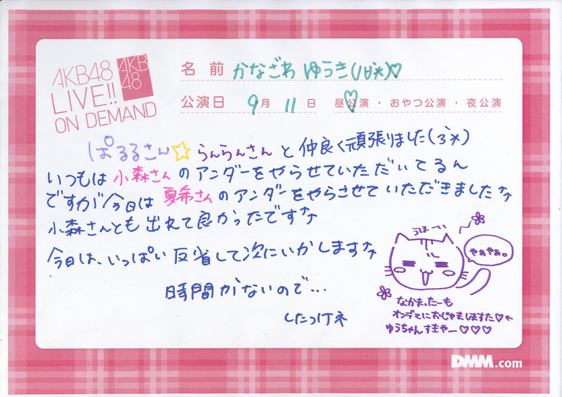 AKB48
LIVE!!
ON DEMAND
AKB
48
名前 かなざわ ゆうき(ﾘ∀`*)♡
公演日 9月11日 昼公演・おやつ公演・夜公演
ぱるるさん☆らんらんさんと仲良く頑張りました(
いつもは小森さんのアンダーをやらせていただいてるん
ですが今日は夏希さんのアンダーをやらさせていただきました
小森さんとも出れて良かったです
今日は、いっぱい反省して次にいかします
時間がないので…
したっけネ
うほーい
やぁやぁ。
なかまったーも
オンデマにおじゃましますた♡
ゆうちゃんすまやー♡♡♡
DMM.com